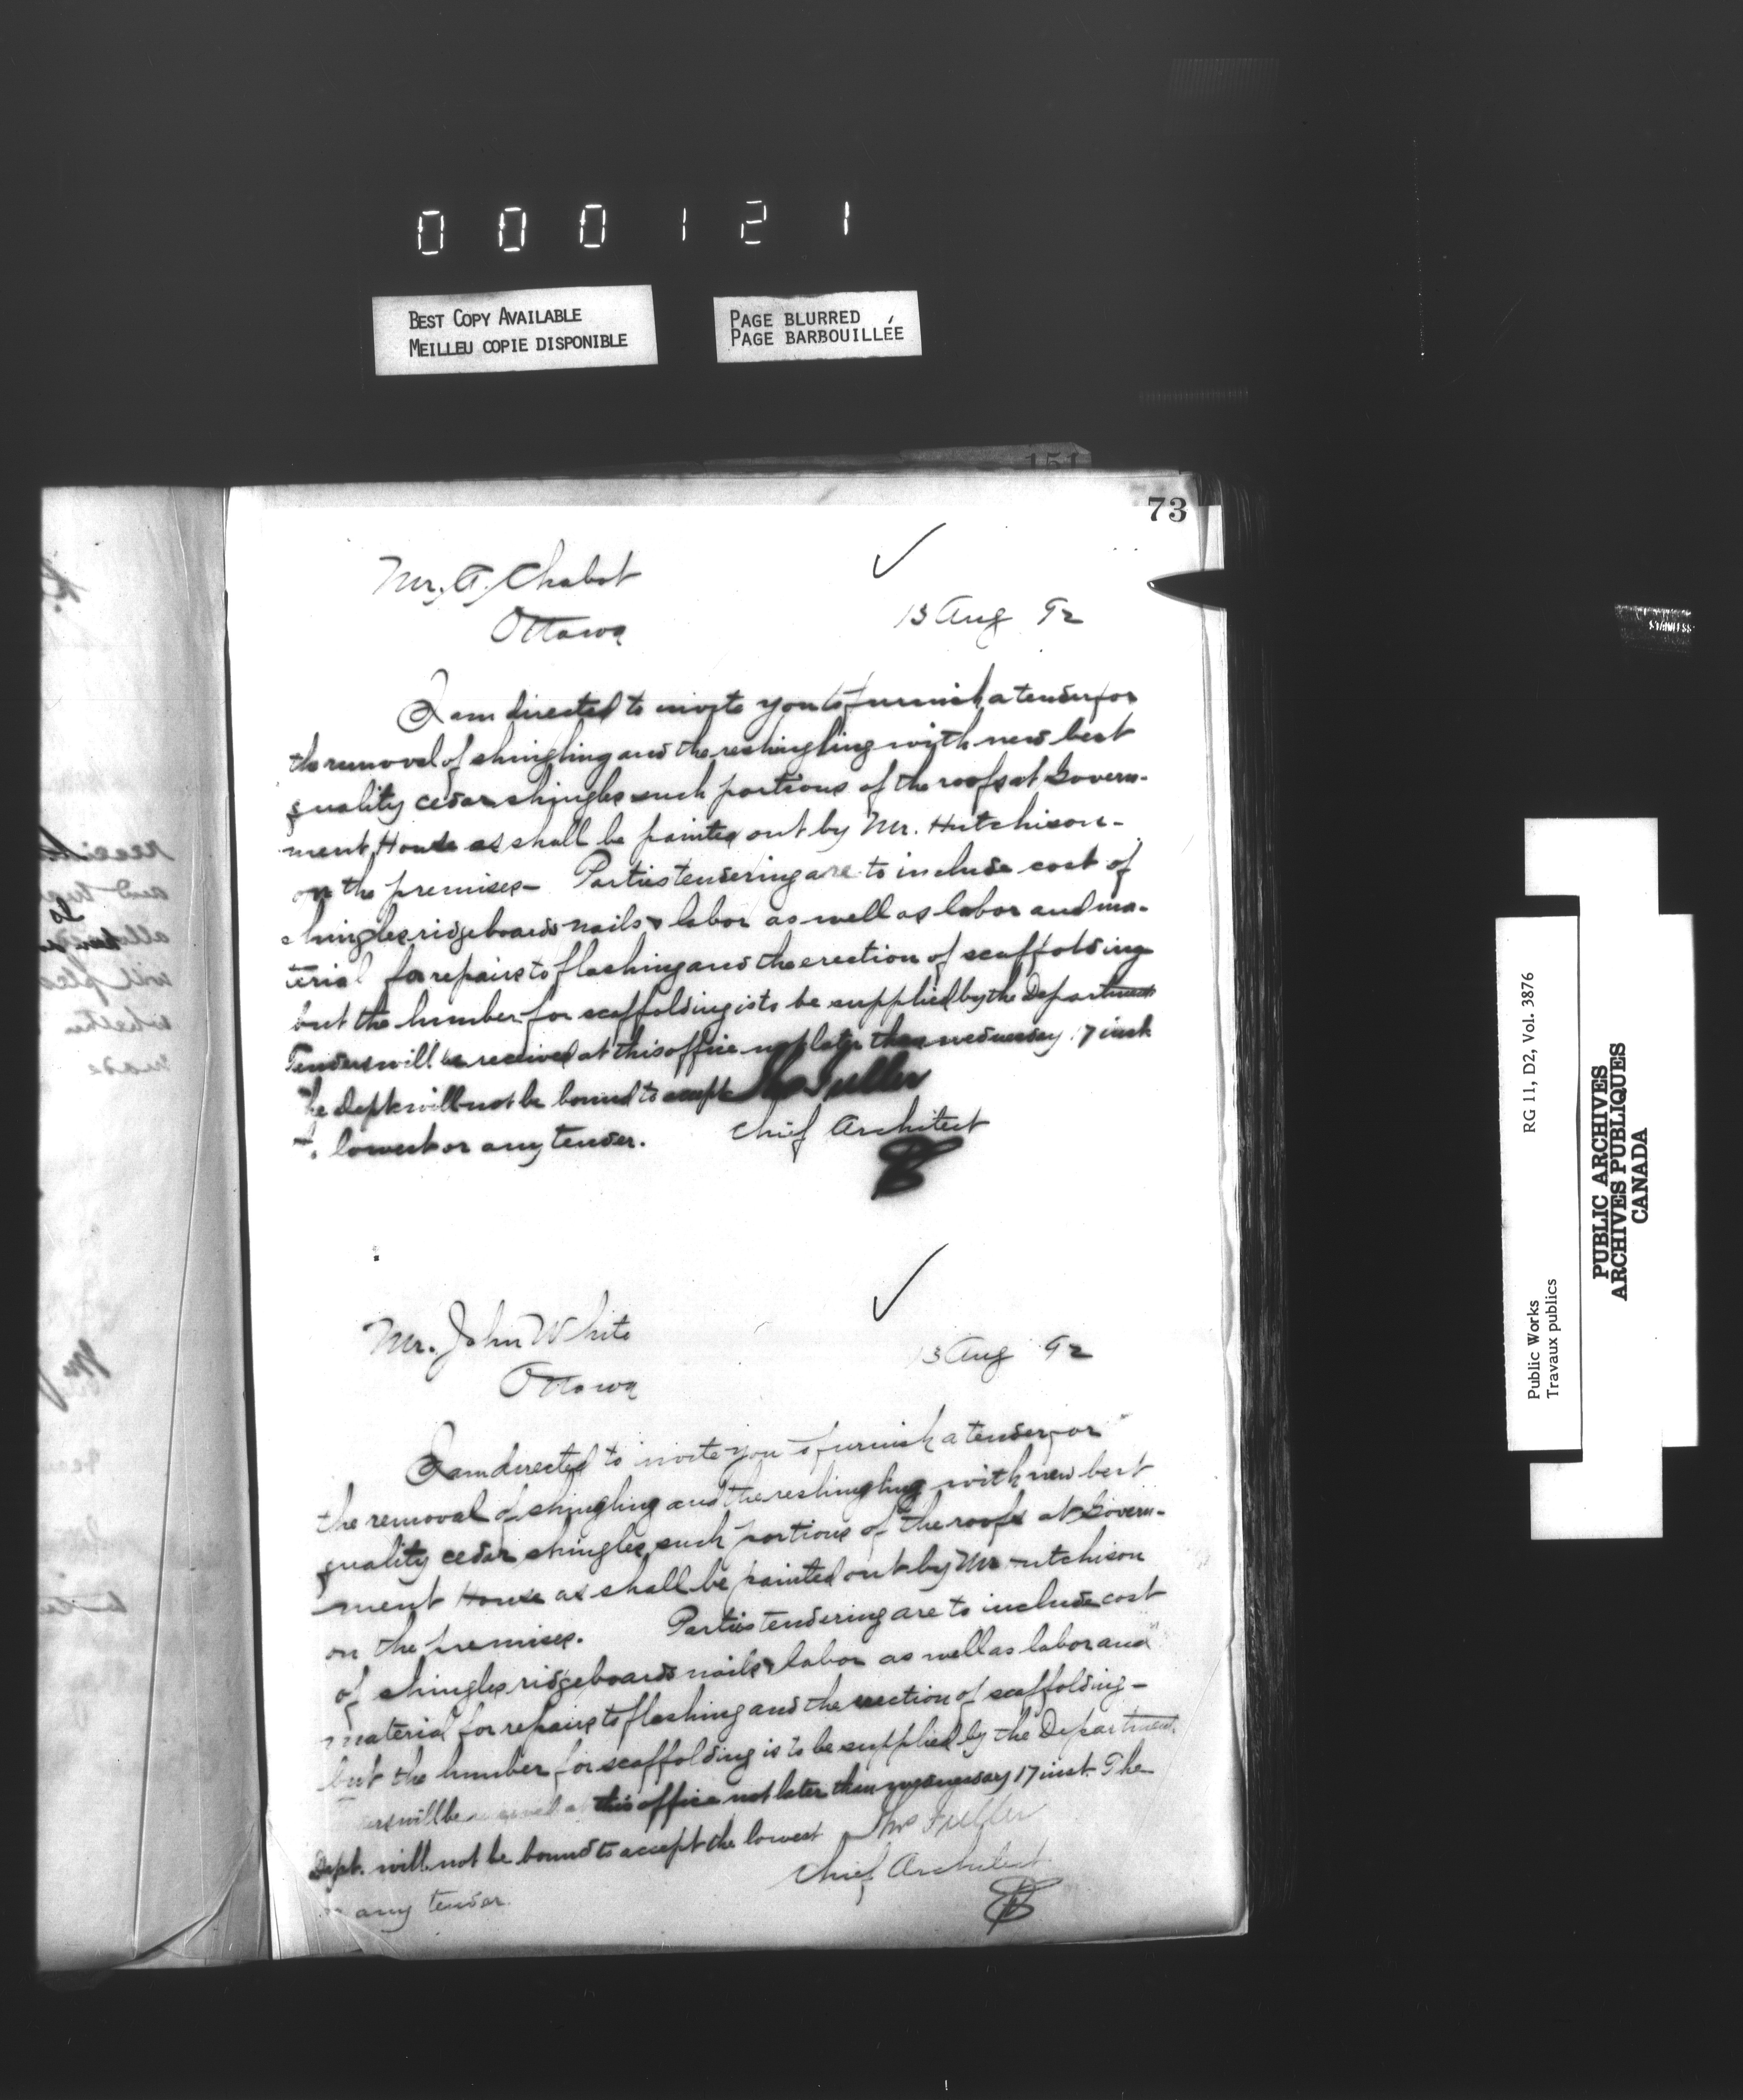 000121
BEST COPY AVAILABLE
MEILLEU COPIE DISPONIBLE
PAGE BLURRED
PAGE BARBOUILLÉE
151
73
Mr. A. Chabot
Ottawa
13 Aug 92
I am directed to invite you to furnish a tender for
the removal of shingling and the reshingling with new best
quality cedar shingles such portions of the roofs at Govern-
ment House as shall be pointed out by Mr. Hutchison -
on the premises - Parties tendering are to include cost of
shingles ridgeboards nails & labor as well as labor and ma-
terial for repairs to flashing and the erection of scaffolding
but the lumber for scaffolding is to be supplied by the Department
Tenders will be received at this office not later than wednesday 17 inst
The Dept will not be bound to accept Thos Fuller
the lowest or any tender. Chief Architect
Mr. John White
Ottawa
13 Aug 92
I am directed to invite you to furnish a tender for
the removal of shingling and the reshingling with new best
quality cedar shingles such portions of the roofs at Govern-
ment House as shall be pointed out by Mr Hutchison
on the premises. Parties tendering are to include cost
of shingles ridgeboards nails & labor as well as labor and
material for repairs to flashing and the erection of scaffolding -
but the lumber for scaffolding is to be supplied by the Department.
Tenders will be received at this office not later than wednesday 17 inst. The
Dept. will not be bound to accept the lowest Thos Fuller
or any tender. Chief Architect
RG 11, D2, Vol. 3876
Public Works
Travaux publics
PUBLIC ARCHIVES
ARCHIVES PUBLIQUES
CANADA